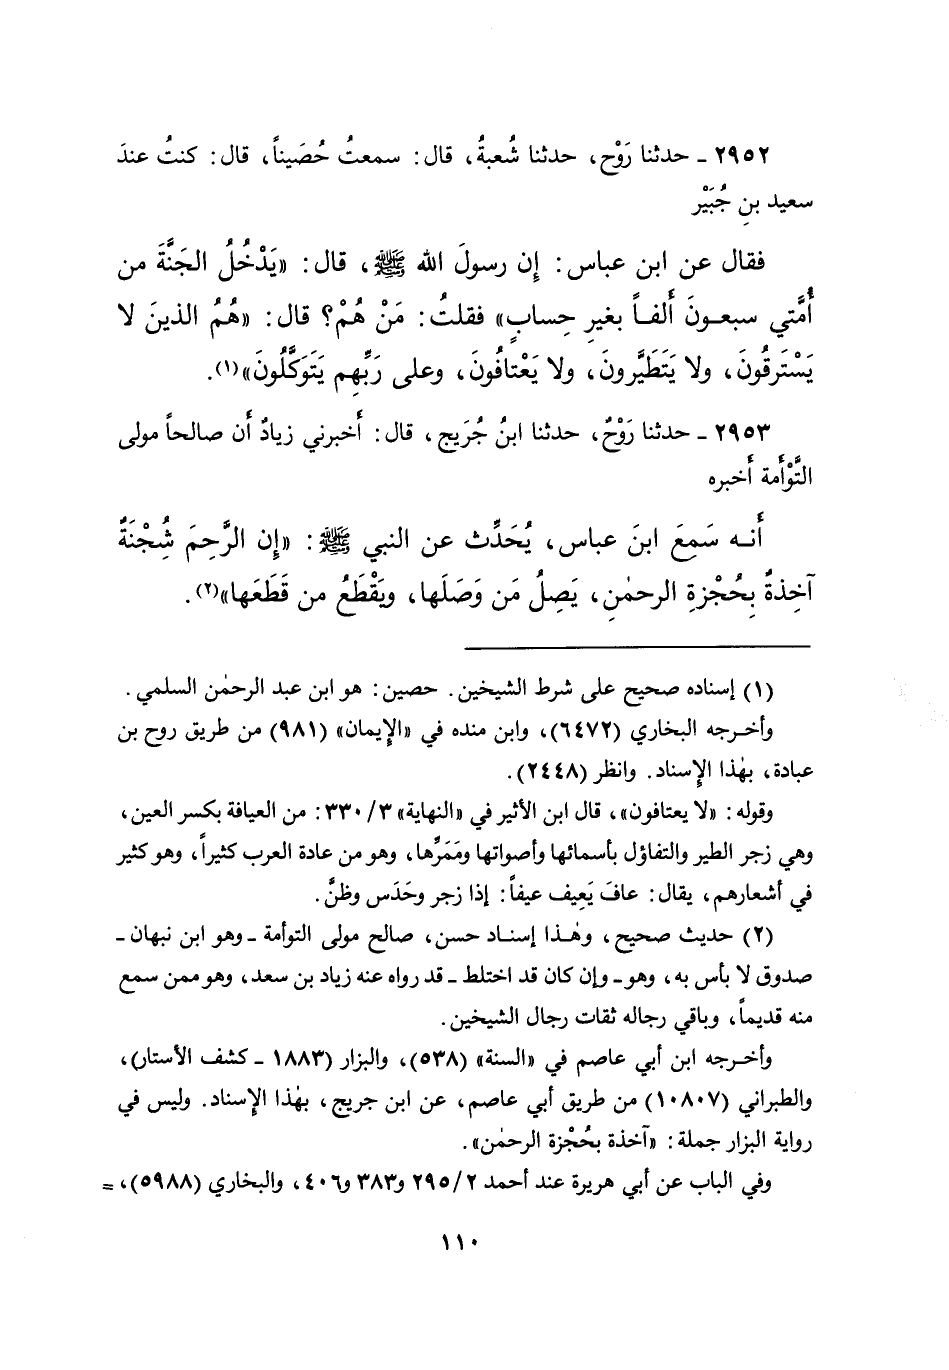 ٢٩٥٢ ـ حدثنا رَوْح، حدثنا شُعبةُ، قال: سمعتُ حُصَيناً، قال: كنتُ عندَ
سعيد بنِ جُبَيْر
فقال عن ابن عباس: إن رسولَ الله ﷺ، قال: «يَدْخُلُ الجَنَّةَ من
أُمَّتي سبعـونَ أَلفـاً بغيرِ حِسابٍ» فقلتُ: مَنْ هُمْ؟ قال: «هُمُ الذينَ لا
يَسْترقُونَ، ولا يَتَطَيَّرونَ، ولا يَعْتافُونَ، وعلى رَبِّهِم يَتَوكَّلُونَ»(١).
٢٩٥٣ ـ حدثنا رَوْحٌ، حدثنا ابنُ جُرَيج، قال: أَخبرني زيادٌ أَن صالحاً مولى
التَّوْأَمة أَخبره
أَنـه سَمِعَ ابنَ عباس، يُحَدِّث عن النبي ﷺ: «إِن الرَّحِمَ شُجْنَةٌ
آخِذةٌ بِحُجْزةِ الرحمٰنِ، يَصِلُ مَن وَصَلَها، ويَقْطَعُ من قَطَعَها»(٢).
(١) إسناده صحيح على شرط الشيخين. حصين: هو ابن عبد الرحمٰن السلمي.
وأخـرجه البخاري (٦٤٧٢)، وابن منده في «الإيمان» (٩٨١) من طريق روح بن
عبادة، بهٰذا الإسناد. وانظر (٢٤٤٨).
وقوله: «لا يعتافون»، قال ابن الأثير في «النهاية» ٣٣٠/٣: من العيافة بكسر العين،
وهي زجر الطير والتفاؤل بأسمائها وأصواتها ومَمَرِّها، وهو من عادة العرب كثيراً، وهو كثير
في أشعارهم، يقال: عافَ يَعِيف عيفاً: إذا زجر وحَدَس وظنَّ.
(٢) حديث صحيح، وهٰـذا إسنـاد حسن، صالح مولى التوأمة ـ وهو ابن نبهان ـ
صدوق لا بأس به، وهو ـ وإن كان قد اختلط ـ قد رواه عنه زياد بن سعد، وهو ممن سمع
منه قديماً، وباقي رجاله ثقات رجال الشيخين.
وأخـرجه ابن أبي عاصم في «السنة» (٥٣٨)، والبزار (١٨٨٣ ـ كشف الأستار)،
والطبراني (١٠٨٠٧) من طريق أبي عاصم، عن ابن جريج، بهٰذا الإسناد. وليس في
رواية البزار جملة: «آخذة بحُجْزة الرحمٰن».
وفي الباب عن أبي هريرة عند أحمد ٢٩٥/٢ و٣٨٣ و٤٠٦، والبخاري (٥٩٨٨)، =
١١٠